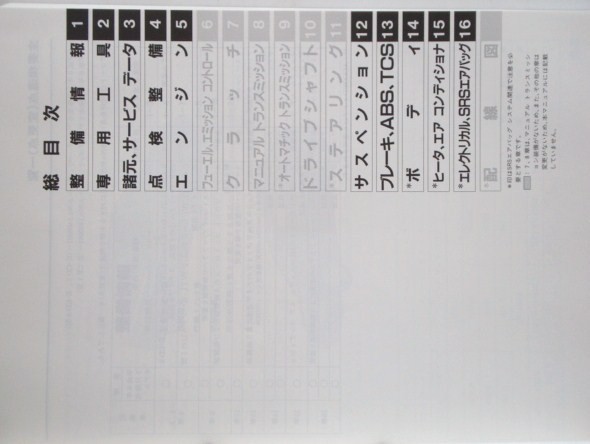 総目次
整備情報 1
専用工具 2
諸元、サービス データ 3
点検整備 4
エンジン 5
フューエル、エミッション コントロール 6
クラッチ 7
マニュアル トランスミッション 8
*オートマチック トランスミッション 9
ドライブシャフト 10
*ステアリング 11
サスペンション 12
ブレーキ、ABS、TCS 13
*ボディ 14
*ヒータ、エア コンディショナ 15
*エレクトリカル、SRSエアバッグ 16
*配線図
*印はSRSエアバッグ システム関連で注意を必
要とする章です。